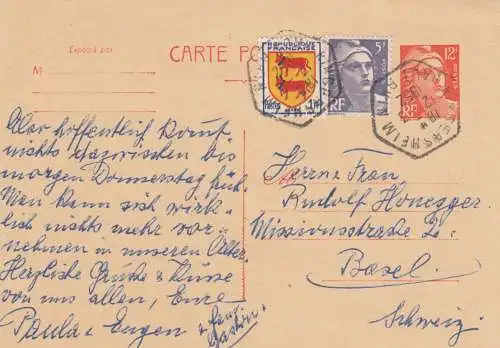 Expédié par
CARTE PO
M
REPUBLIQUE FRANÇAISE
5F
12F
POSTES
RF
RF
Also hoffentlich kommt
nichts dazwischen bis
morgen Donnerstag früh.
Man kann sich wirk-
lich nichts mehr vor-
nehmen in unserem Alter.
Herzliche Grüsse & Küsse
von uns allen, Eure
Paula & Eugen
Herrn & Frau
Rudolf Honegger
Missionsstrasse 2.
Basel.
Schweiz.